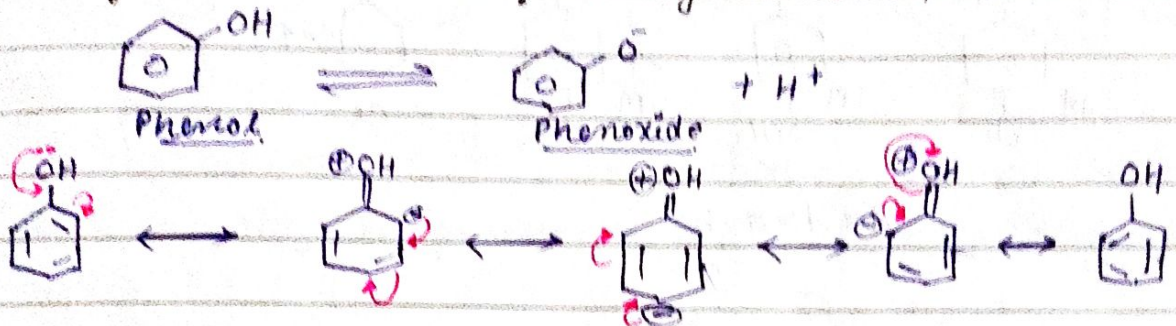 OH O⁻ + H⁺
Phenol Phenoxide
ÖH (+)OH (+)OH (+)OH OH
(-) (-)
(-)